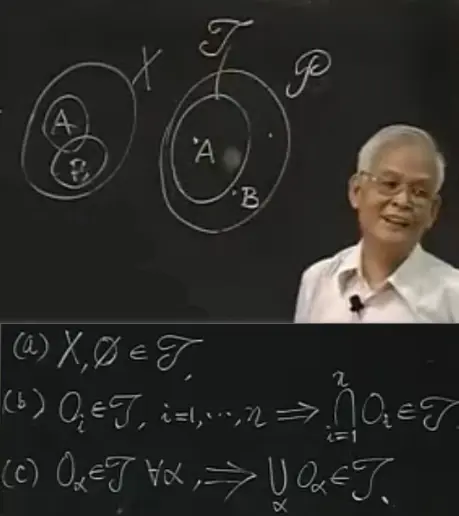 X 𝒯 𝒫
A A
B B
(a) X, ∅ ∈ 𝒯,
(b) Oᵢ ∈ 𝒯, i=1,⋯,n ⟹ ⋂ᵢ₌₁ⁿ Oᵢ ∈ 𝒯,
(c) O_α ∈ 𝒯 ∀α, ⟹ ⋃_α O_α ∈ 𝒯、